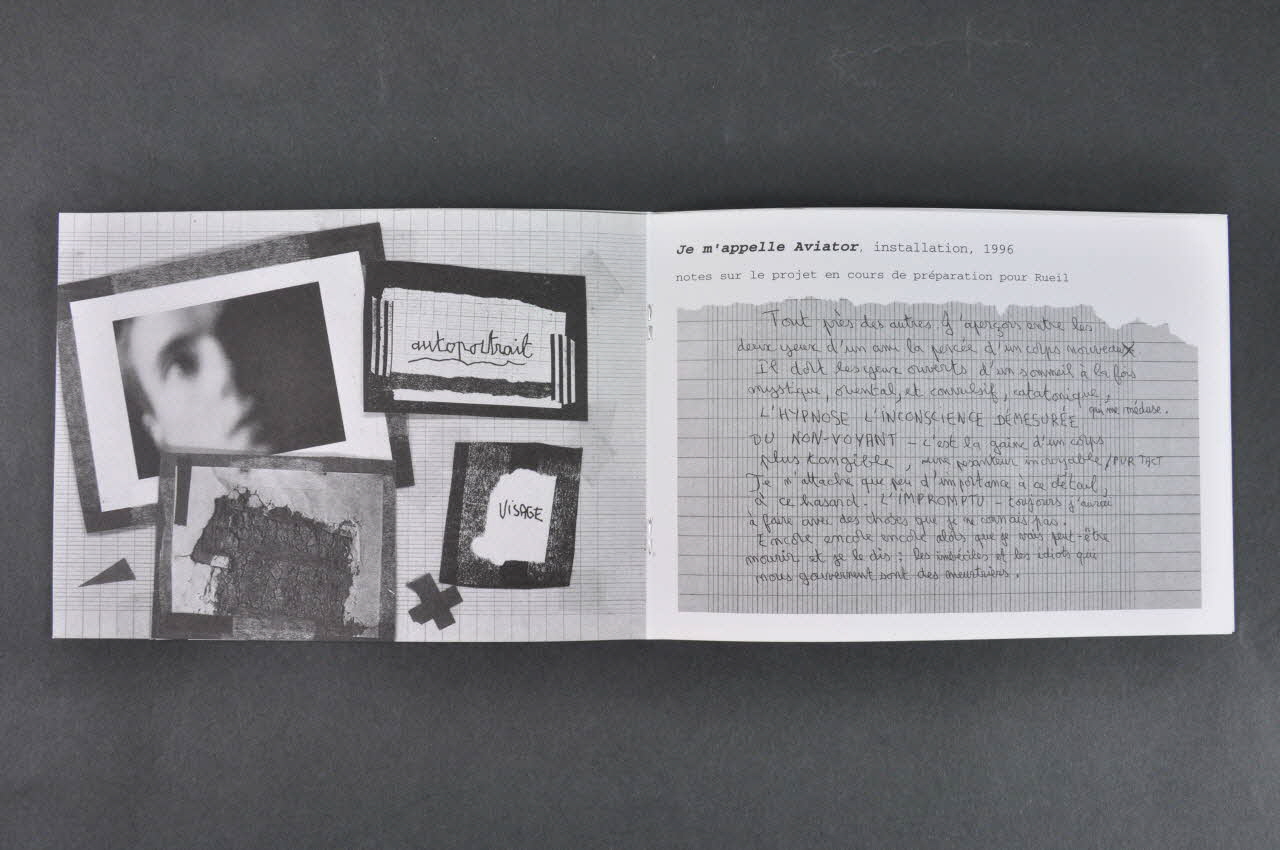 autoportrait
VISAGE
Je m'appelle Aviator, installation, 1996
notes sur le projet en cours de préparation pour Rueil
Tout près des autres. J'aperçois entre les
deux yeux d'un ami la percée d'un corps nouveau
Il dort les yeux ouverts d'un sommeil à la fois
mystique, oriental, et convulsif, catatonique,
L'HYPNOSE L'INCONSCIENCE DÉMESURÉE qui me méduse.
DU NON-VOYANT – c'est la gaine d'un corps
plus tangible, une pesanteur incroyable / PUR TACT
Je n'attache que peu d'importance à ce détail,
à ce hasard. L'IMPROMPTU – toujours j'aurai
à faire avec des choses que je ne connais pas.
Encore encore encore alors que je vais peut-être
mourir et je le dis : les imbéciles et les idiots qui
nous gouvernent sont des meurtriers.